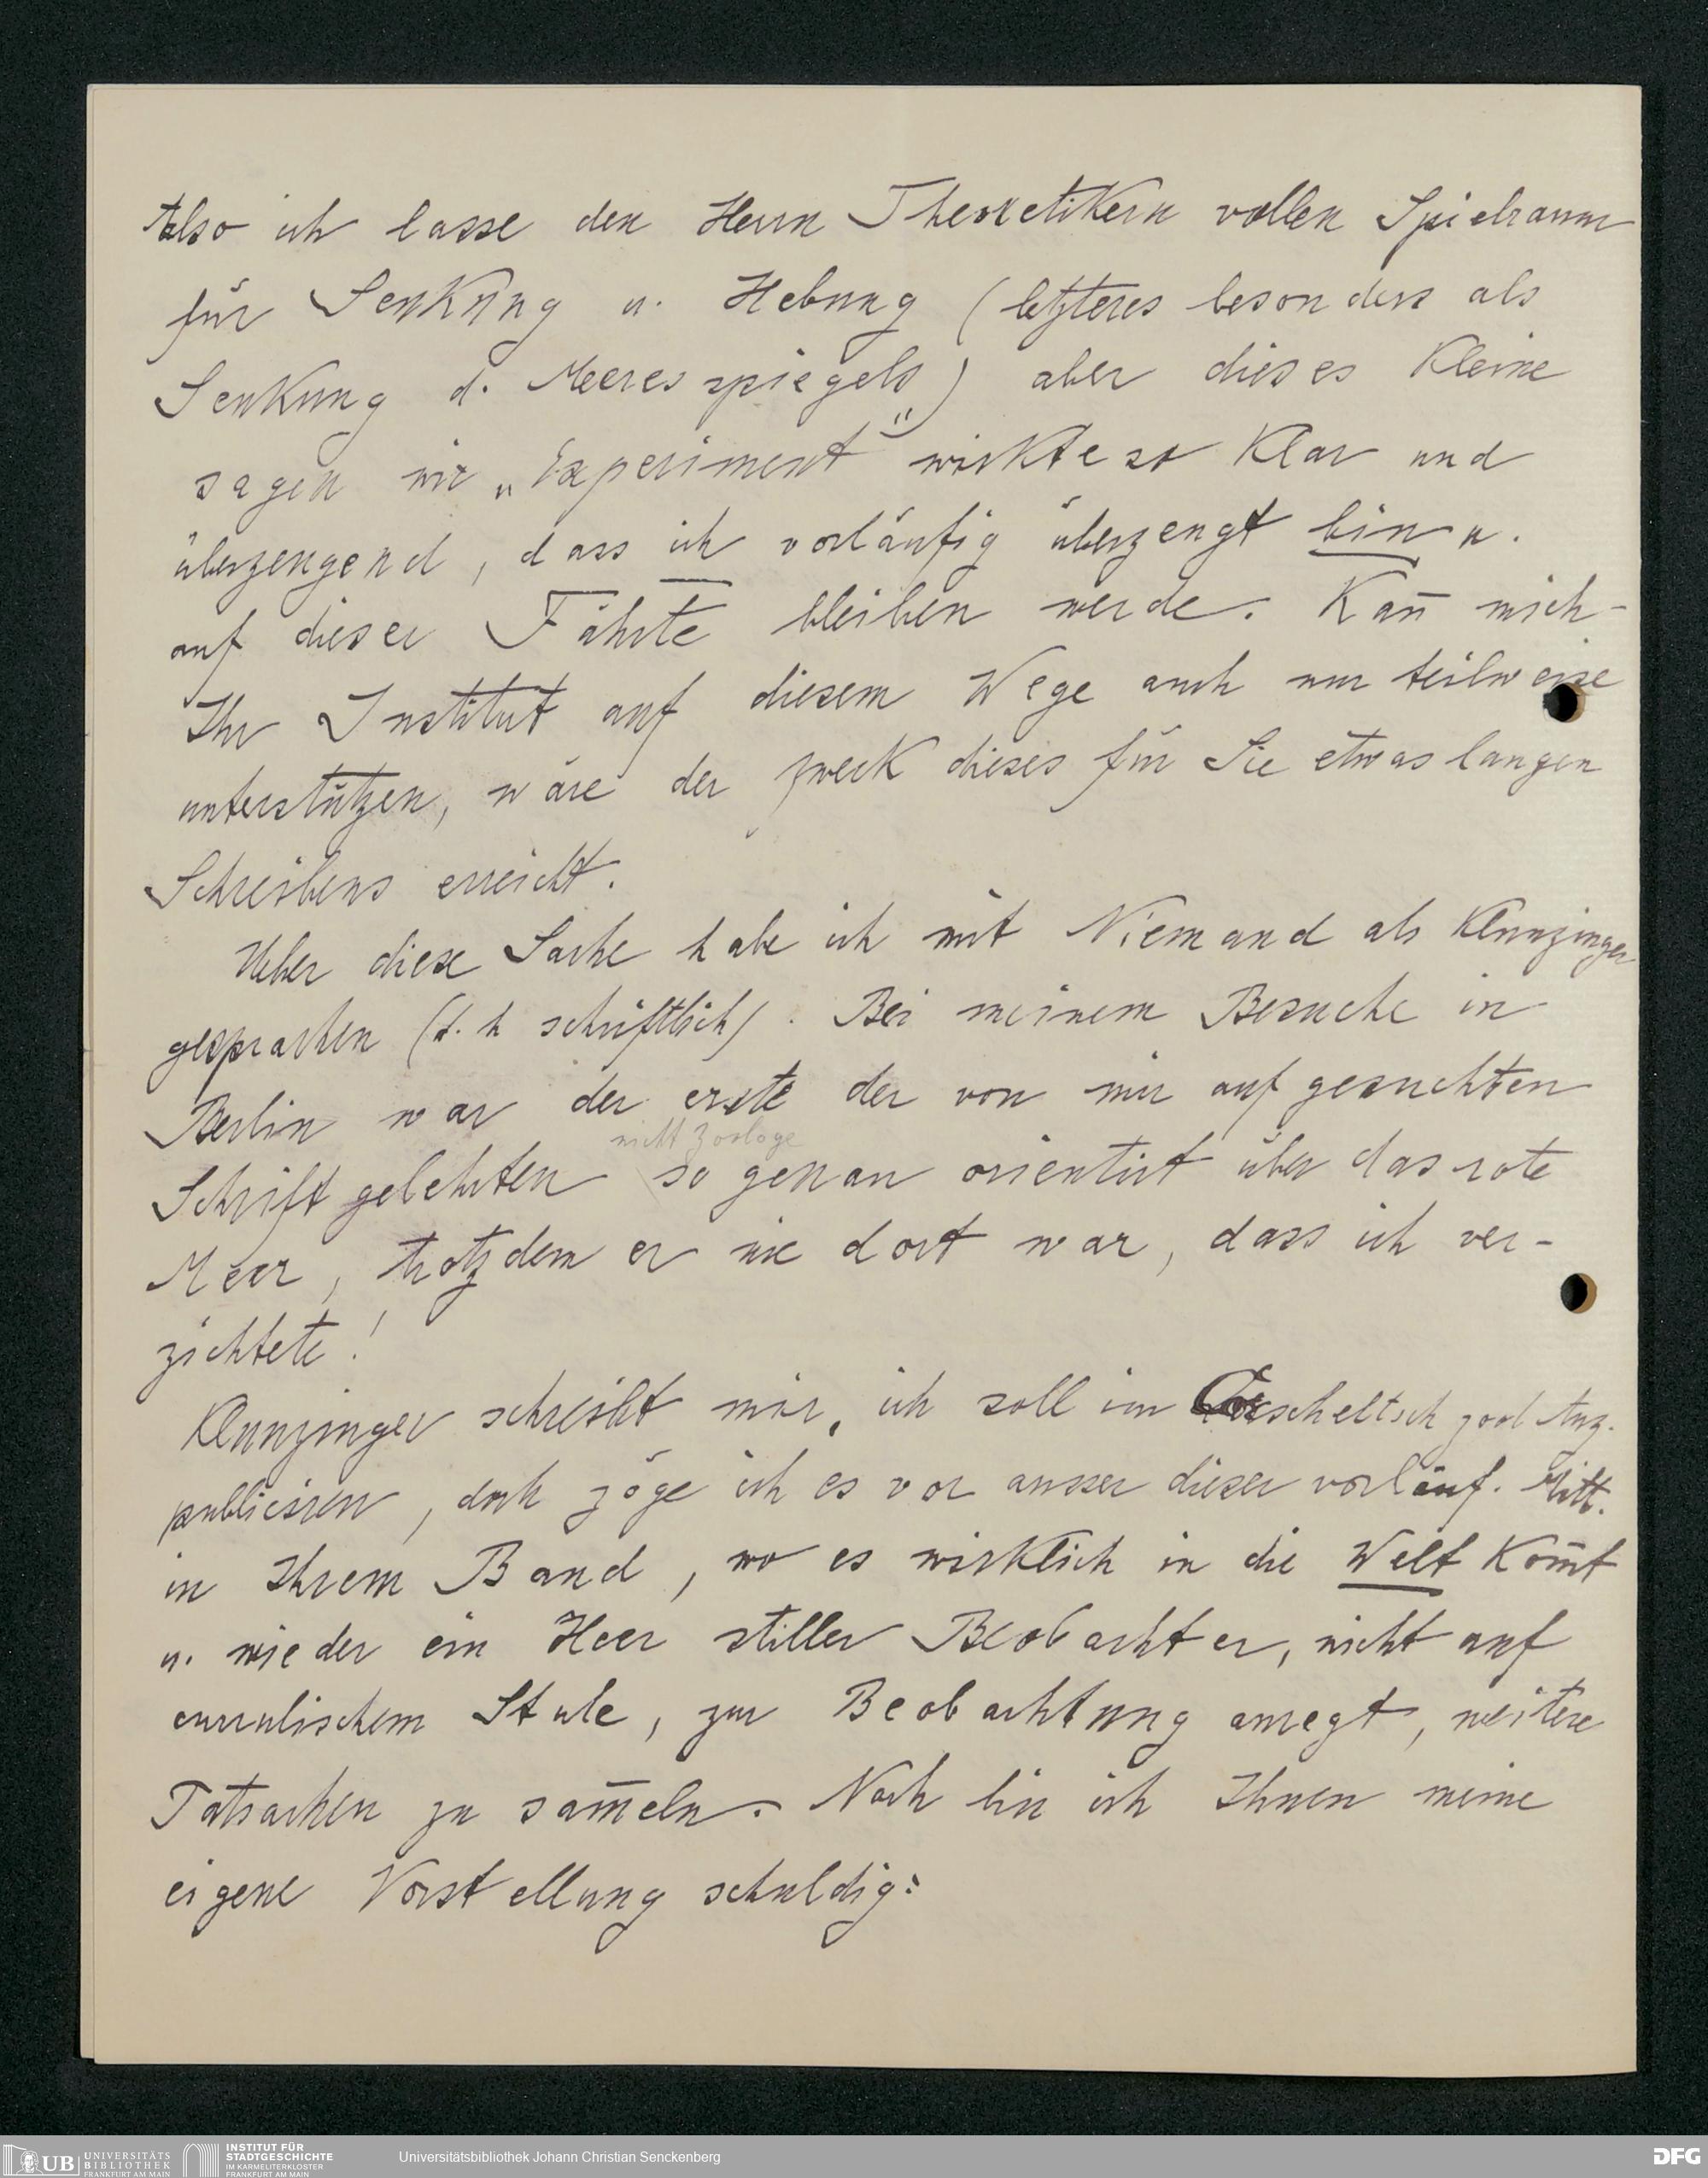 Also ich lasse den Herrn Theoretikern vollen Spielraum
für Senkung u. Hebung (letzteres besonders als
Senkung d. Meeresspiegels) aber dieses kleine
sagen wir „Experiment" wirkte so klar und
überzeugend, dass ich vorläufig überzeugt bin u.
auf dieser Fährte bleiben werde. Kan̄ mich
Ihr Institut auf diesem Wege auch nur teilweise
unterstützen, wäre der Zweck dieses für Sie etwas langen
Schreibens erreicht.
Ueber diese Sache habe ich mit Niemand als Klunzinger
gesprochen (d. h schriftlich). Bei meinem Besuche in
Berlin war der erste der von mir aufgesuchten
nicht Zoologe
Schriftgelehrten so genau orientirt über das rote
Meer, trotzdem er nie dort war, dass ich ver-
zichtete!
Klunzinger schreibt mir, ich soll im zool Anz.
publiciren, doch zöge ich es vor ausser dieser vorläuf. Mitt.
in Ihrem Band, wo es wirklich in die Welt kom̄t
u. wieder ein Heer stiller Beobachter, nicht auf
currulischem Stule, zur Beobachtung anregt, weitere
Tatsachen zu sam̄eln. Noch bin ich Ihnen meine
eigene Vorstellung schuldig:
UB UNIVERSITÄTS BIBLIOTHEK FRANKFURT AM MAIN
INSTITUT FÜR STADTGESCHICHTE IM KARMELITERKLOSTER FRANKFURT AM MAIN
Universitätsbibliothek Johann Christian Senckenberg
DFG